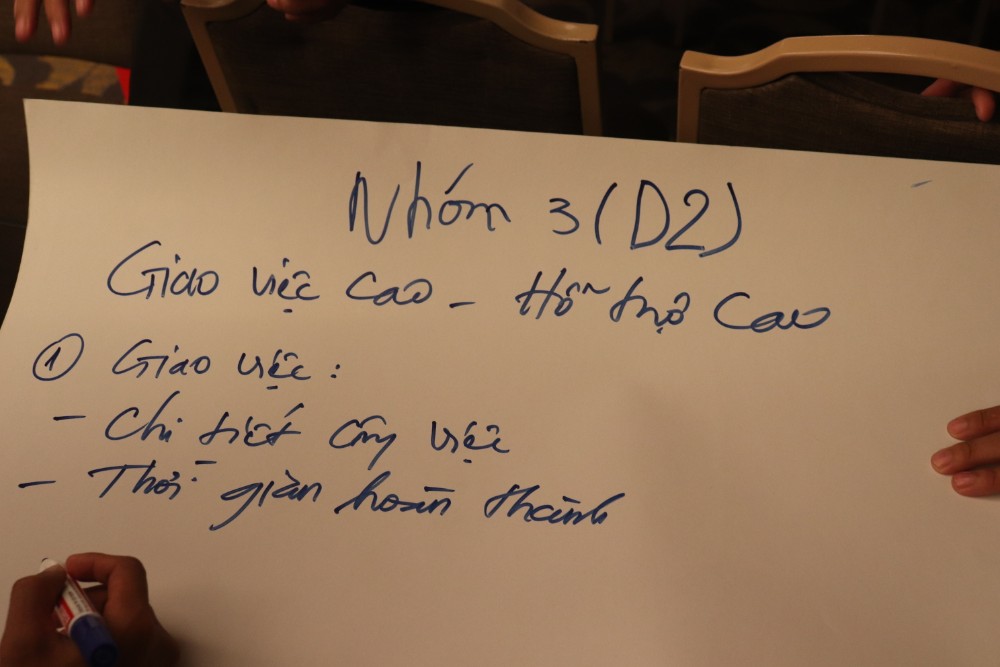 Nhóm 3 (D2)
Giao việc cao - Hỗ trợ cao
① Giao việc:
- Chi tiết công việc
- Thời gian hoàn thành